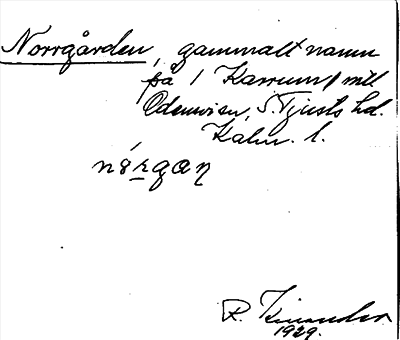 Norrgården, gammalt namn
på 1 Karrum, mtl
Odensvi sn, S. Tjusts hd.
Kalm. l.
R. Kinander
1929.